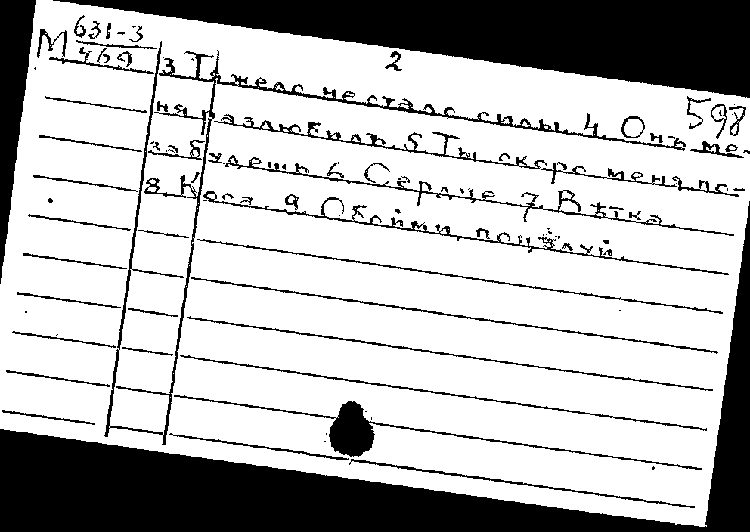 М 631-3
469
2
598
3 Тяжело не стало силы 4. Онъ ме-
ня разлюбилъ. 5 Ты скоро меня по-
забудешь 6. Сердце 7. Вѣтка.
8. Коса. 9. Обойми, поцѣлуй.